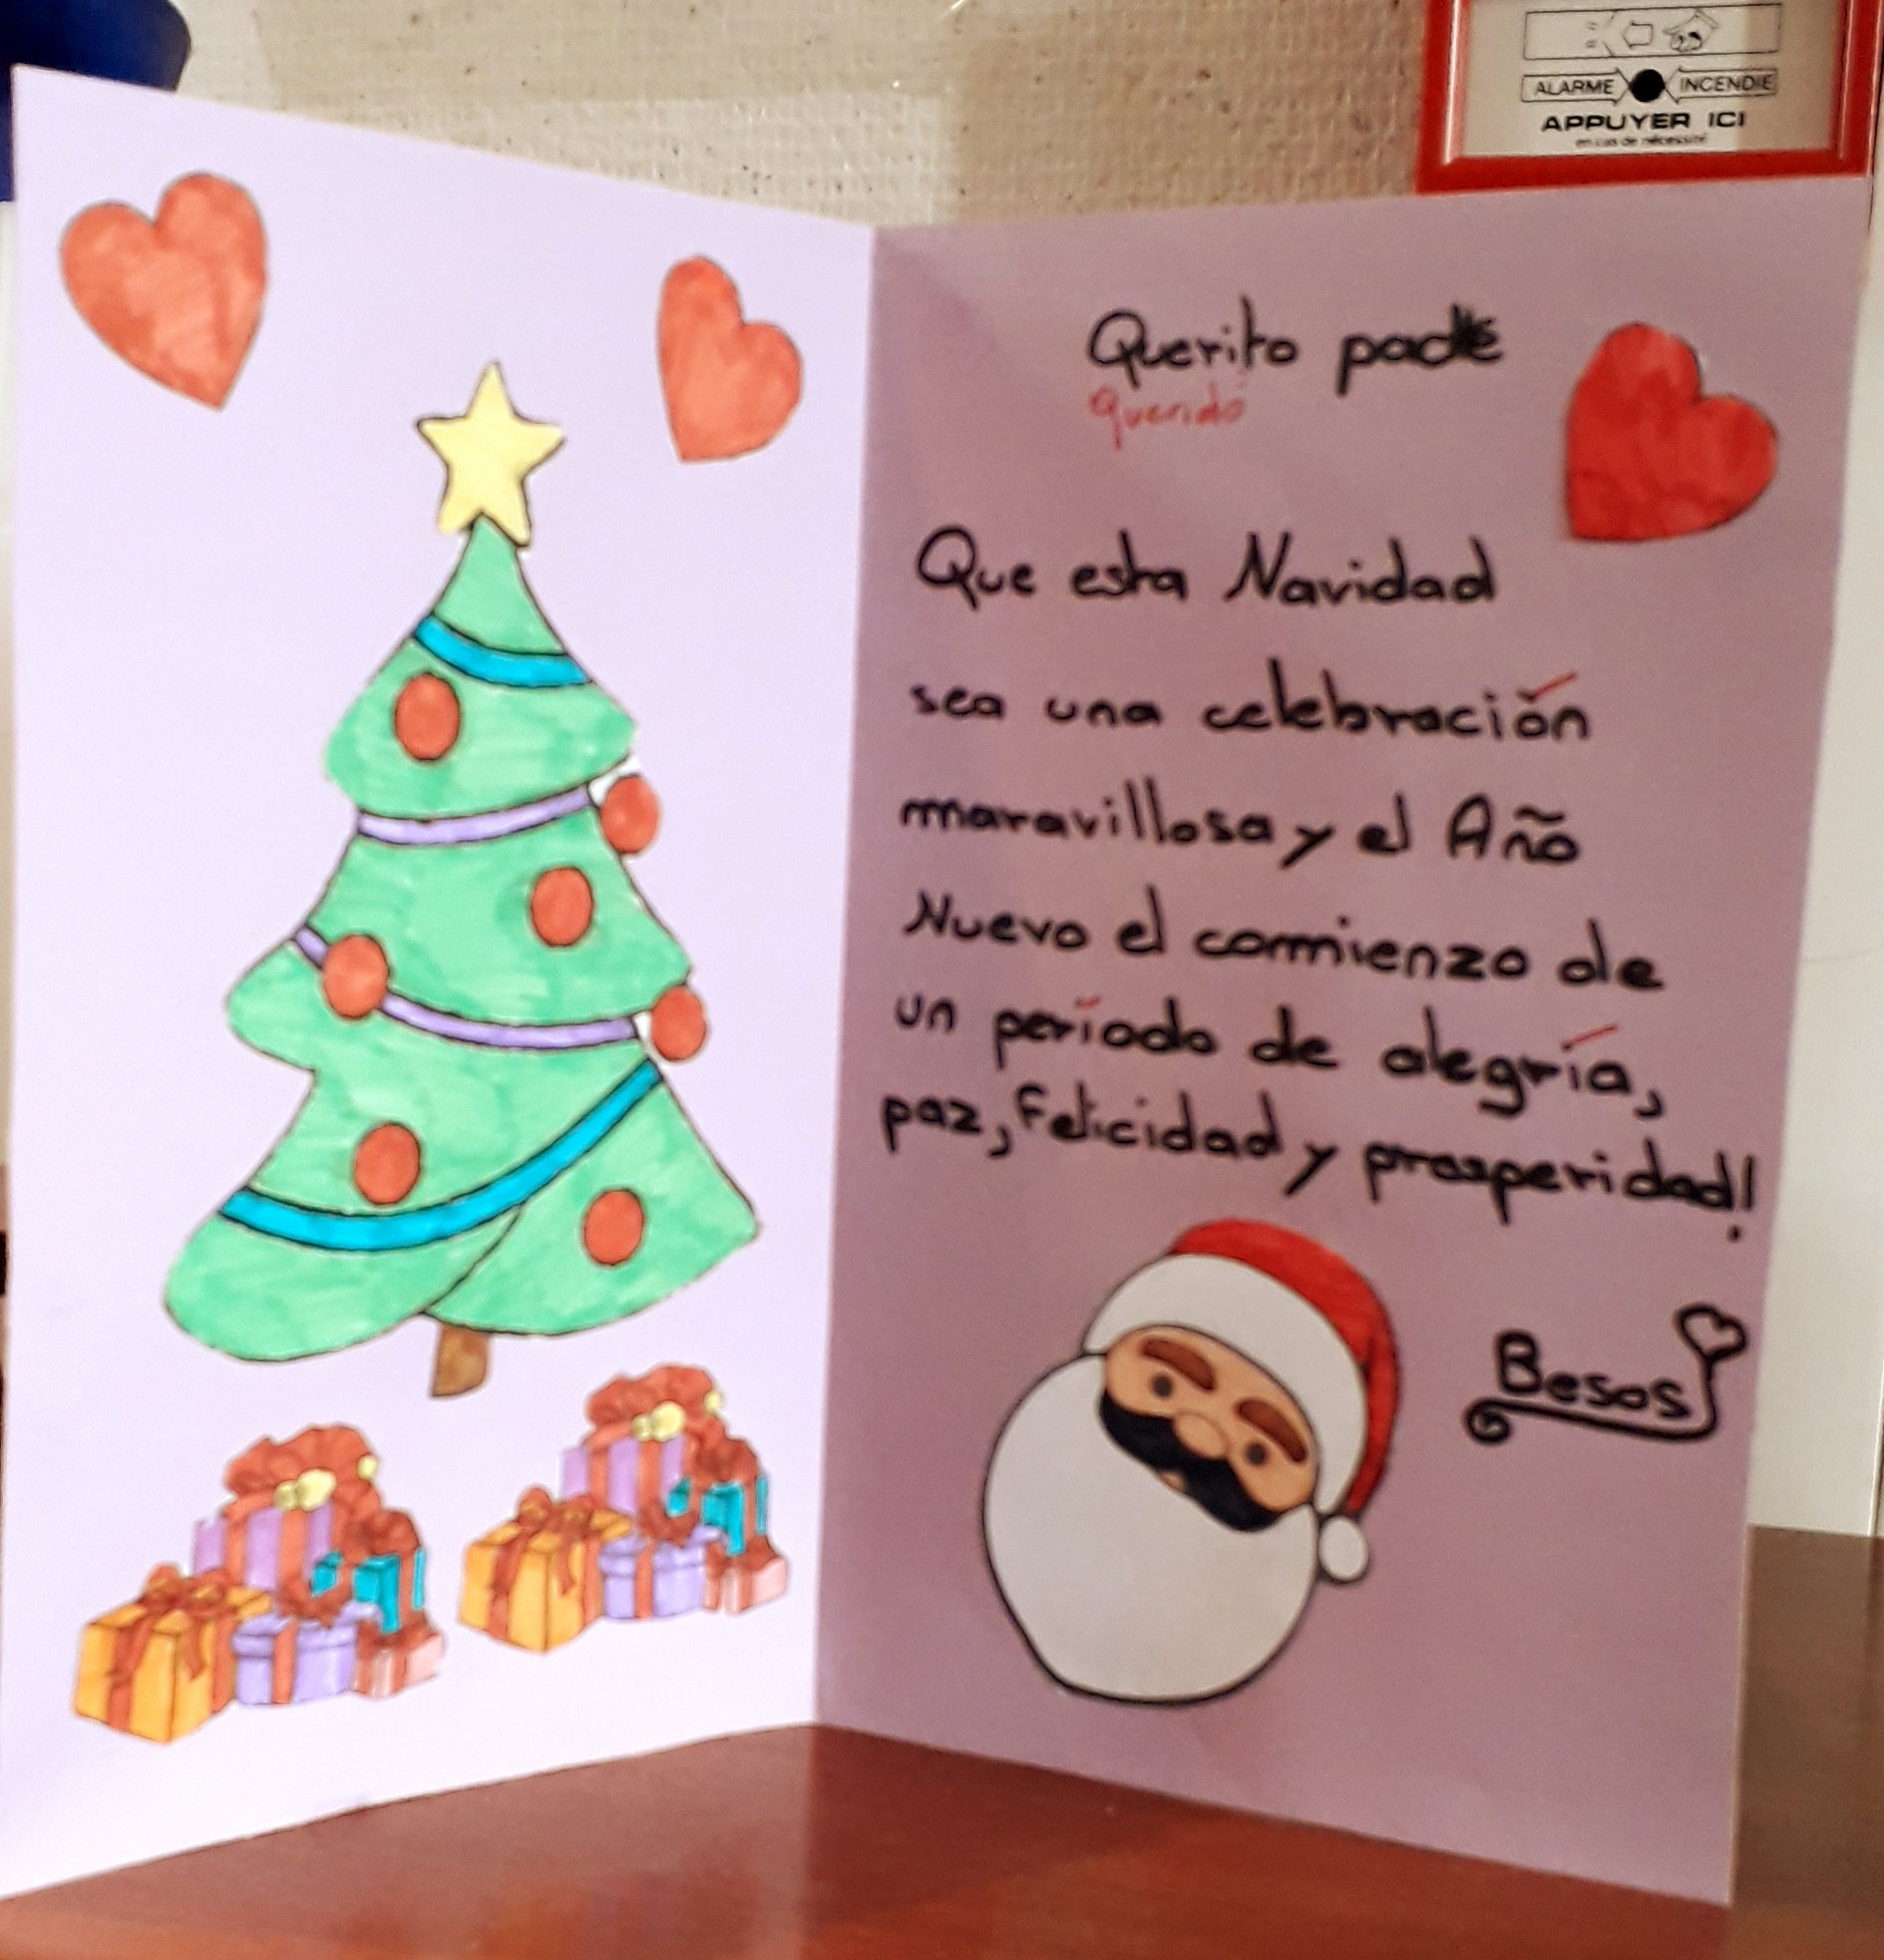 ALARME INCENDIE
APPUYER ICI
en cas de nécessité
Querito padre
Querido
Que esta Navidad
sea una celebración
maravillosa y el Año
Nuevo el comienzo de
un período de alegría,
paz, Felicidad y prosperidad!
Besos